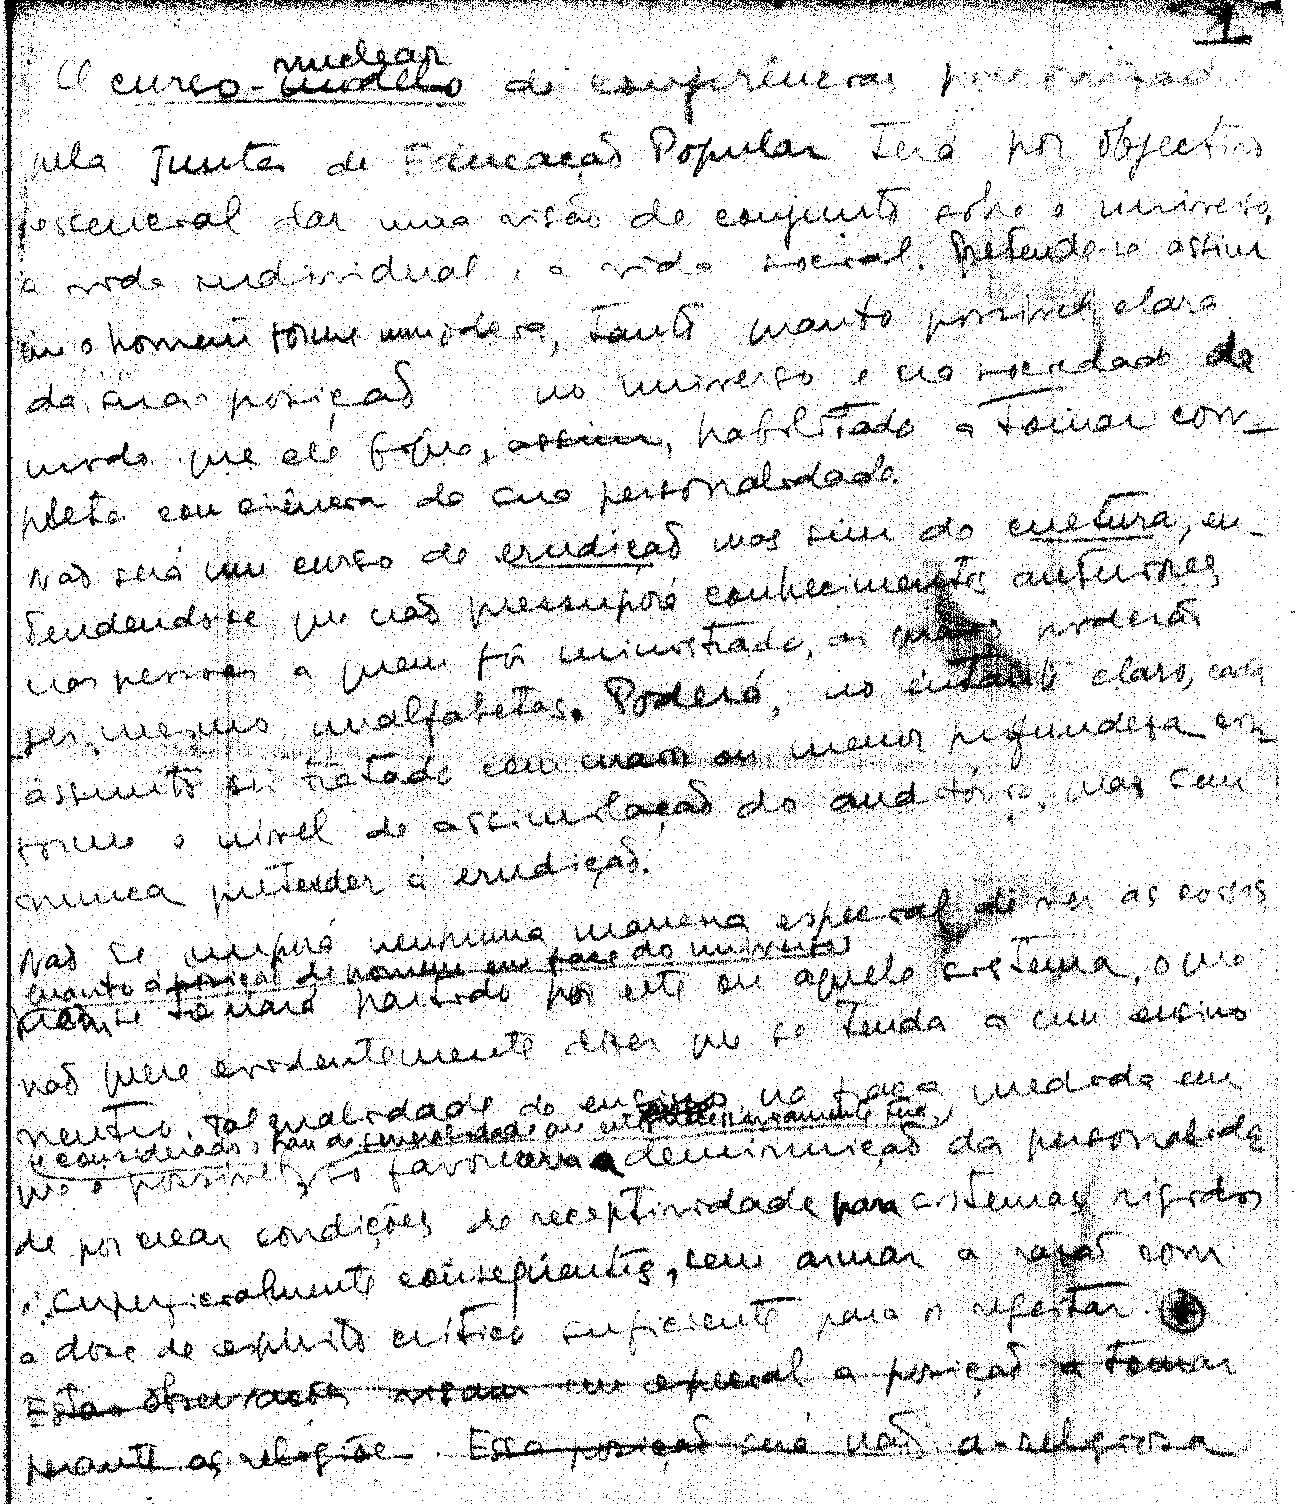 1
nuclear
O curso-modelo de conferências preconizado
pela Junta de Educação Popular terá por objectivo
essencial dar uma visão de conjunto sobre o universo,
a vida individual, a vida social. Pretende-se assim
que o homem tome uma ideia, tanto quanto possível clara
da sua posição no universo e na sociedade de
modo que ele fique, assim, habilitado a tomar com-
pleta consciência da sua personalidade.
Não será um curso de erudição mas sim de cultura, en-
tendendo-se que não pressupõe conhecimentos anteriores
nas pessoas a quem fôr ministrado, as quais poderão
ser, mesmo, analfabetas. Poderá, no entanto, claro, cada
assunto ser tratado com maior ou menor profundeza con-
forme o nível de assimilação do auditório, mas sem
nunca pretender á erudição.
Não se imporá nenhuma maneira especial de ver as coisas
quanto á posição do homem em face do universo
nem se tomará partido por este ou aquele sistema, o que
não quere evidentemente dizer que se tenda a um ensino
neutro. Tal qualidade do ensino, na fraca medida em
que é possível, só favorecerá a deminuição da personalida
de por crear condições de receptividade para sistemas rigidos
e superficialmente conseqüentes, sem armar a razão com
a dose de espirito crítico suficiente para os rejeitar.
Estas observações visam em especial a posição a tomar
perante as religiões. Essa posição será não a-religiosa